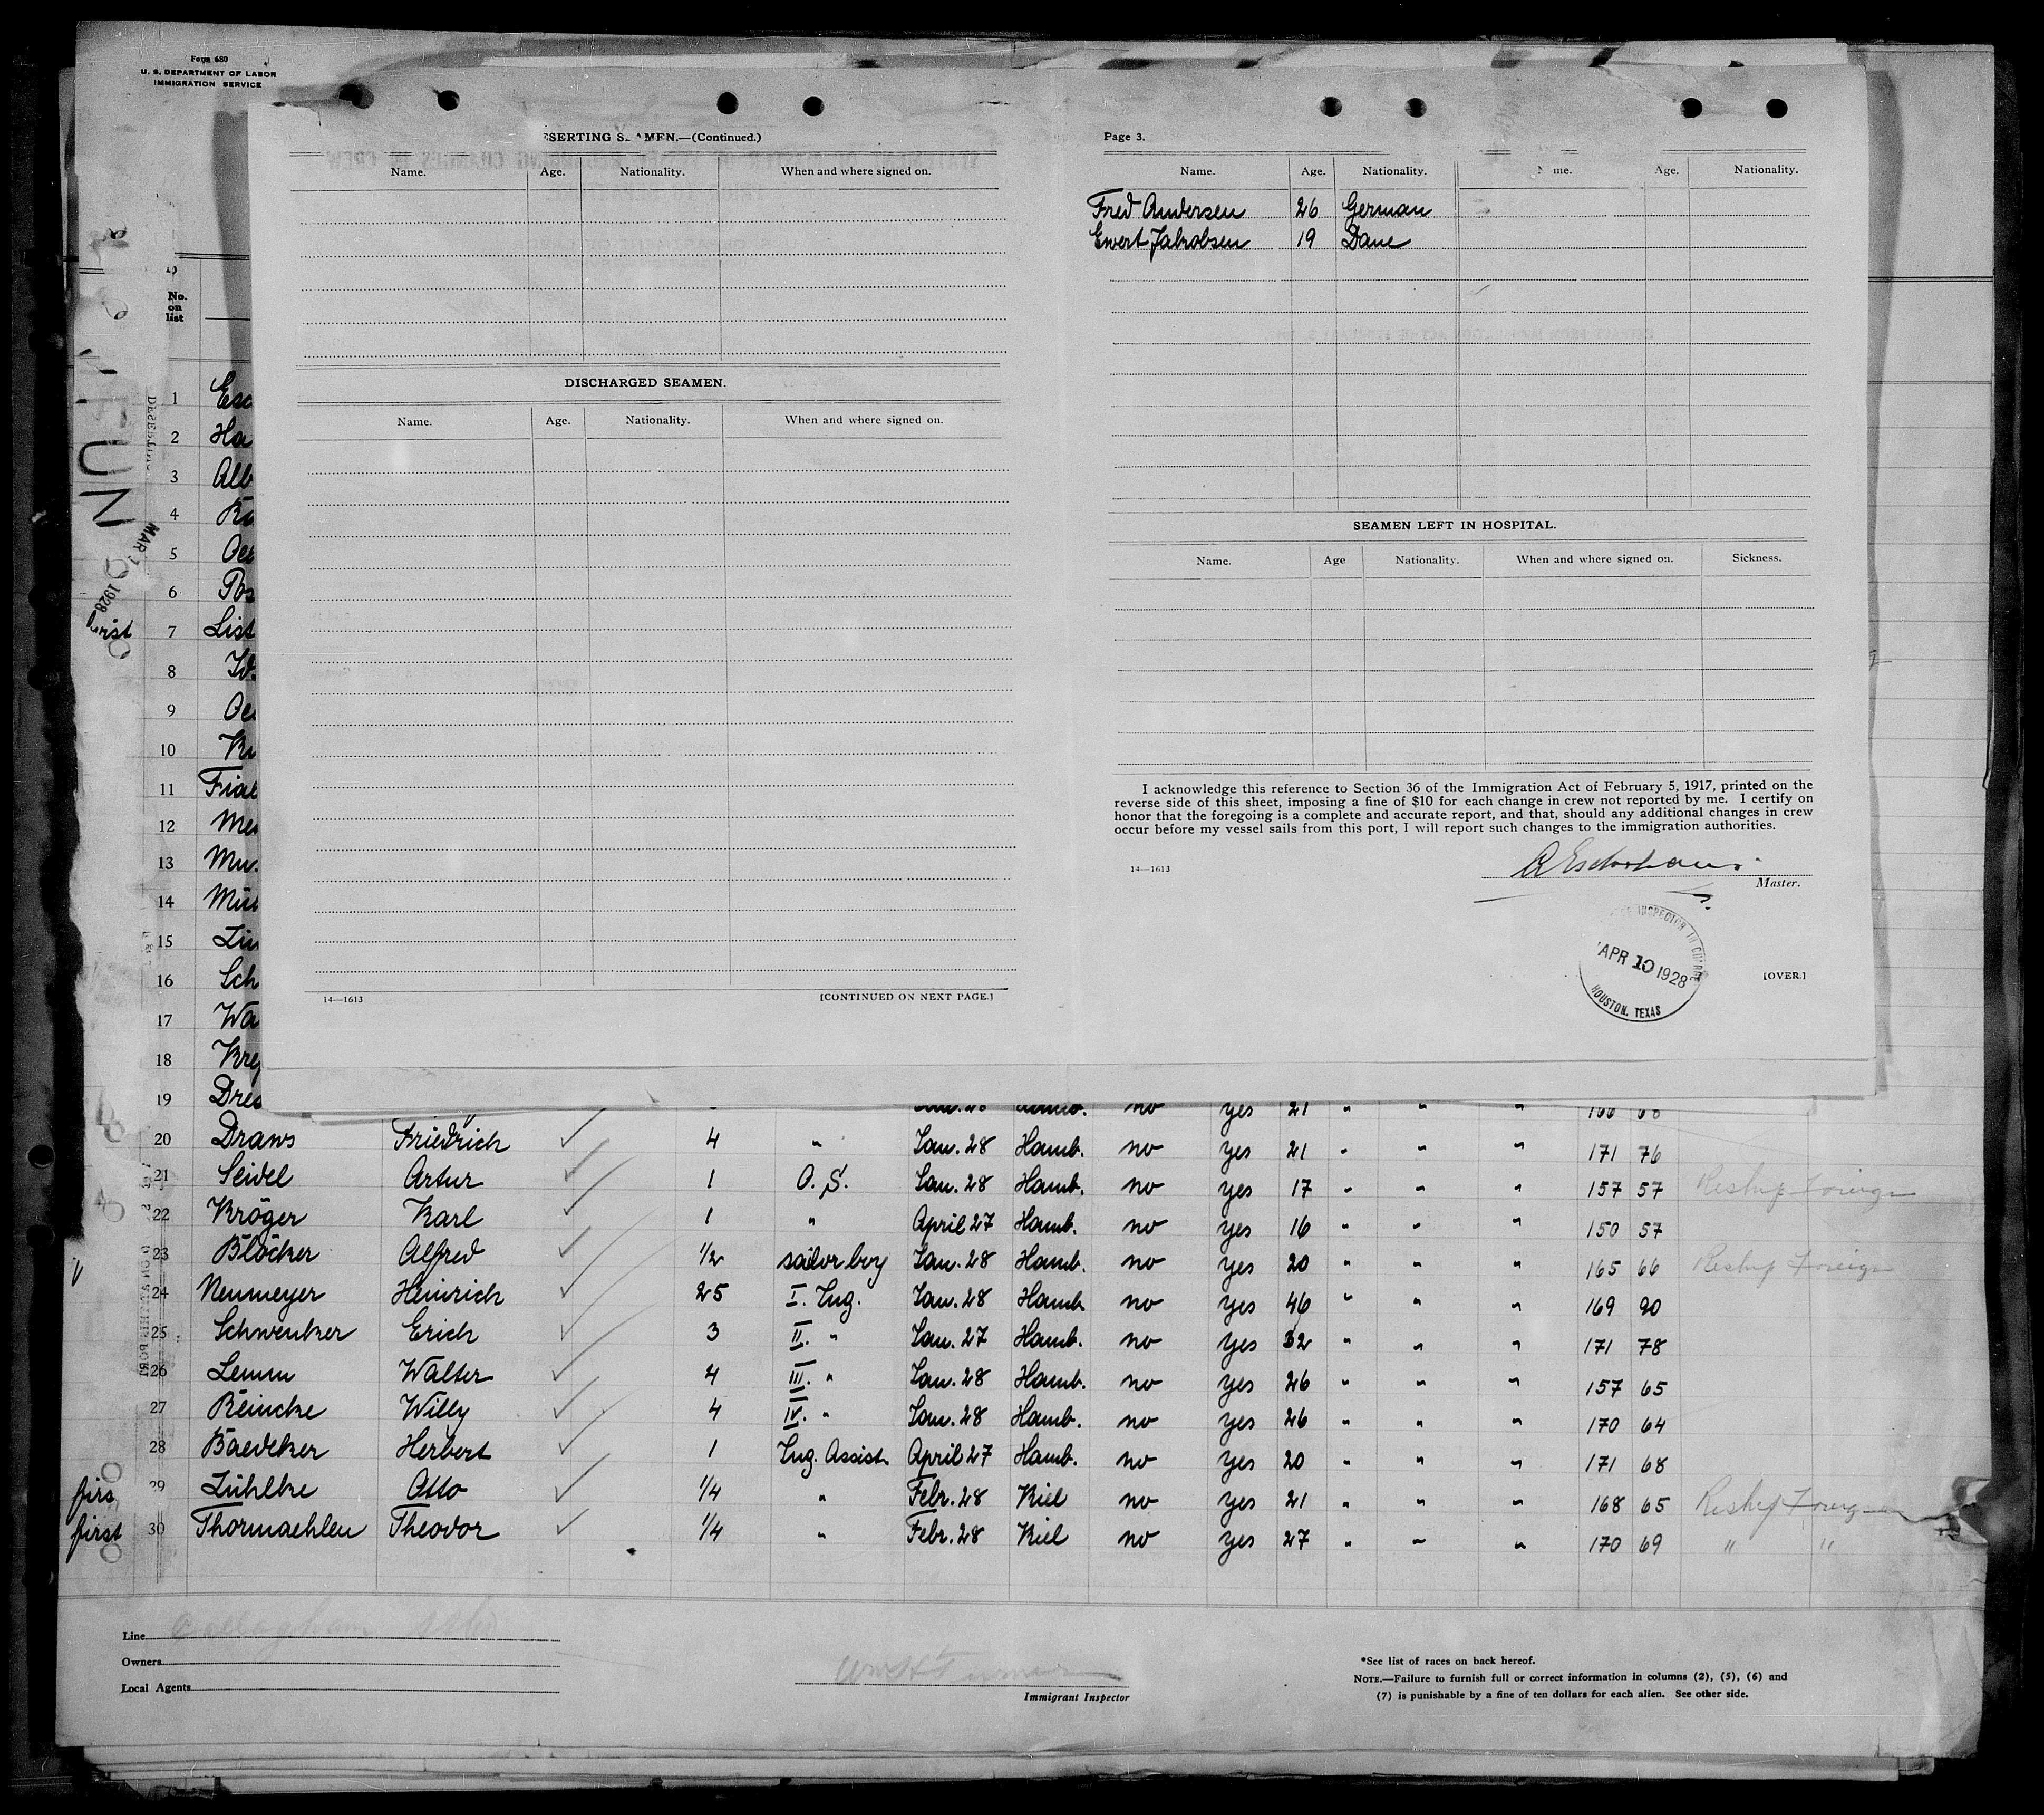 Form 680
U. S. DEPARTMENT OF LABOR
IMMIGRATION SERVICE
(Continued.)
Name. Age. Nationality. When and where signed on.
DISCHARGED SEAMEN.
Name. Age. Nationality. When and where signed on.
14—1613 [CONTINUED ON NEXT PAGE.]
Page 3.
Name. Age. Nationality. Age. Nationality.
Fred Andersen 26 German
Ewert Jakobsen 19 Dane
SEAMEN LEFT IN HOSPITAL.
Name. Age Nationality. When and where signed on. Sickness.
I acknowledge this reference to Section 36 of the Immigration Act of February 5, 1917, printed on the
reverse side of this sheet, imposing a fine of $10 for each change in crew not reported by me. I certify on
honor that the foregoing is a complete and accurate report, and that, should any additional changes in crew
occur before my vessel sails from this port, I will report such changes to the immigration authorities.
14—1613
Master.
INSPECTOR IN CHARGE
APR 10 1928
HOUSTON, TEXAS
[OVER.]
No.
on
list
MAR 1928
1 Esc
2 Ha
3 Alb
4
5
6
7 List
8
9
10
11
12
13
14
15
16 Sch
17 Wa
18
19 no yes 21 " " "
20 Draws Friedrich 4 " Jan. 28 Hamb. no yes 21 " " " 171 76
21 Seidel Artur 1 O. S. Jan. 28 Hamb. no yes 17 " " " 157 57 Reship Foreign
22 Kröger Karl 1 " April 27 Hamb. no yes 16 " " " 150 57
23 Blöcker Alfred 1/2 sailor boy Jan. 28 Hamb. no yes 20 " " " 165 66 Reship Foreign
24 Neumeyer Heinrich 25 I. Ing. Jan. 28 Hamb. no yes 46 " " " 169 90
25 Schwenker Erich 3 II. " Jan. 27 Hamb. no yes 32 " " " 171 78
26 Lemm Walter 4 III. " Jan. 28 Hamb. no yes 26 " " " 157 65
27 Reincke Willy 4 IV. " Jan. 28 Hamb. no yes 26 " " " 170 64
28 Baedeker Herbert 1 Ing. Assist. April 27 Hamb. no yes 20 " " " 171 68
29 Lühlke Otto 1/4 " Febr. 28 Kiel no yes 21 " " " 168 65 Reship Foreign
first 30 Thormaehlen Theodor 1/4 " Febr. 28 Kiel no yes 27 " " " 170 69 " "
Line
Owners
Local Agents
Immigrant Inspector
*See list of races on back hereof.
NOTE.—Failure to furnish full or correct information in columns (2), (5), (6) and
(7) is punishable by a fine of ten dollars for each alien. See other side.